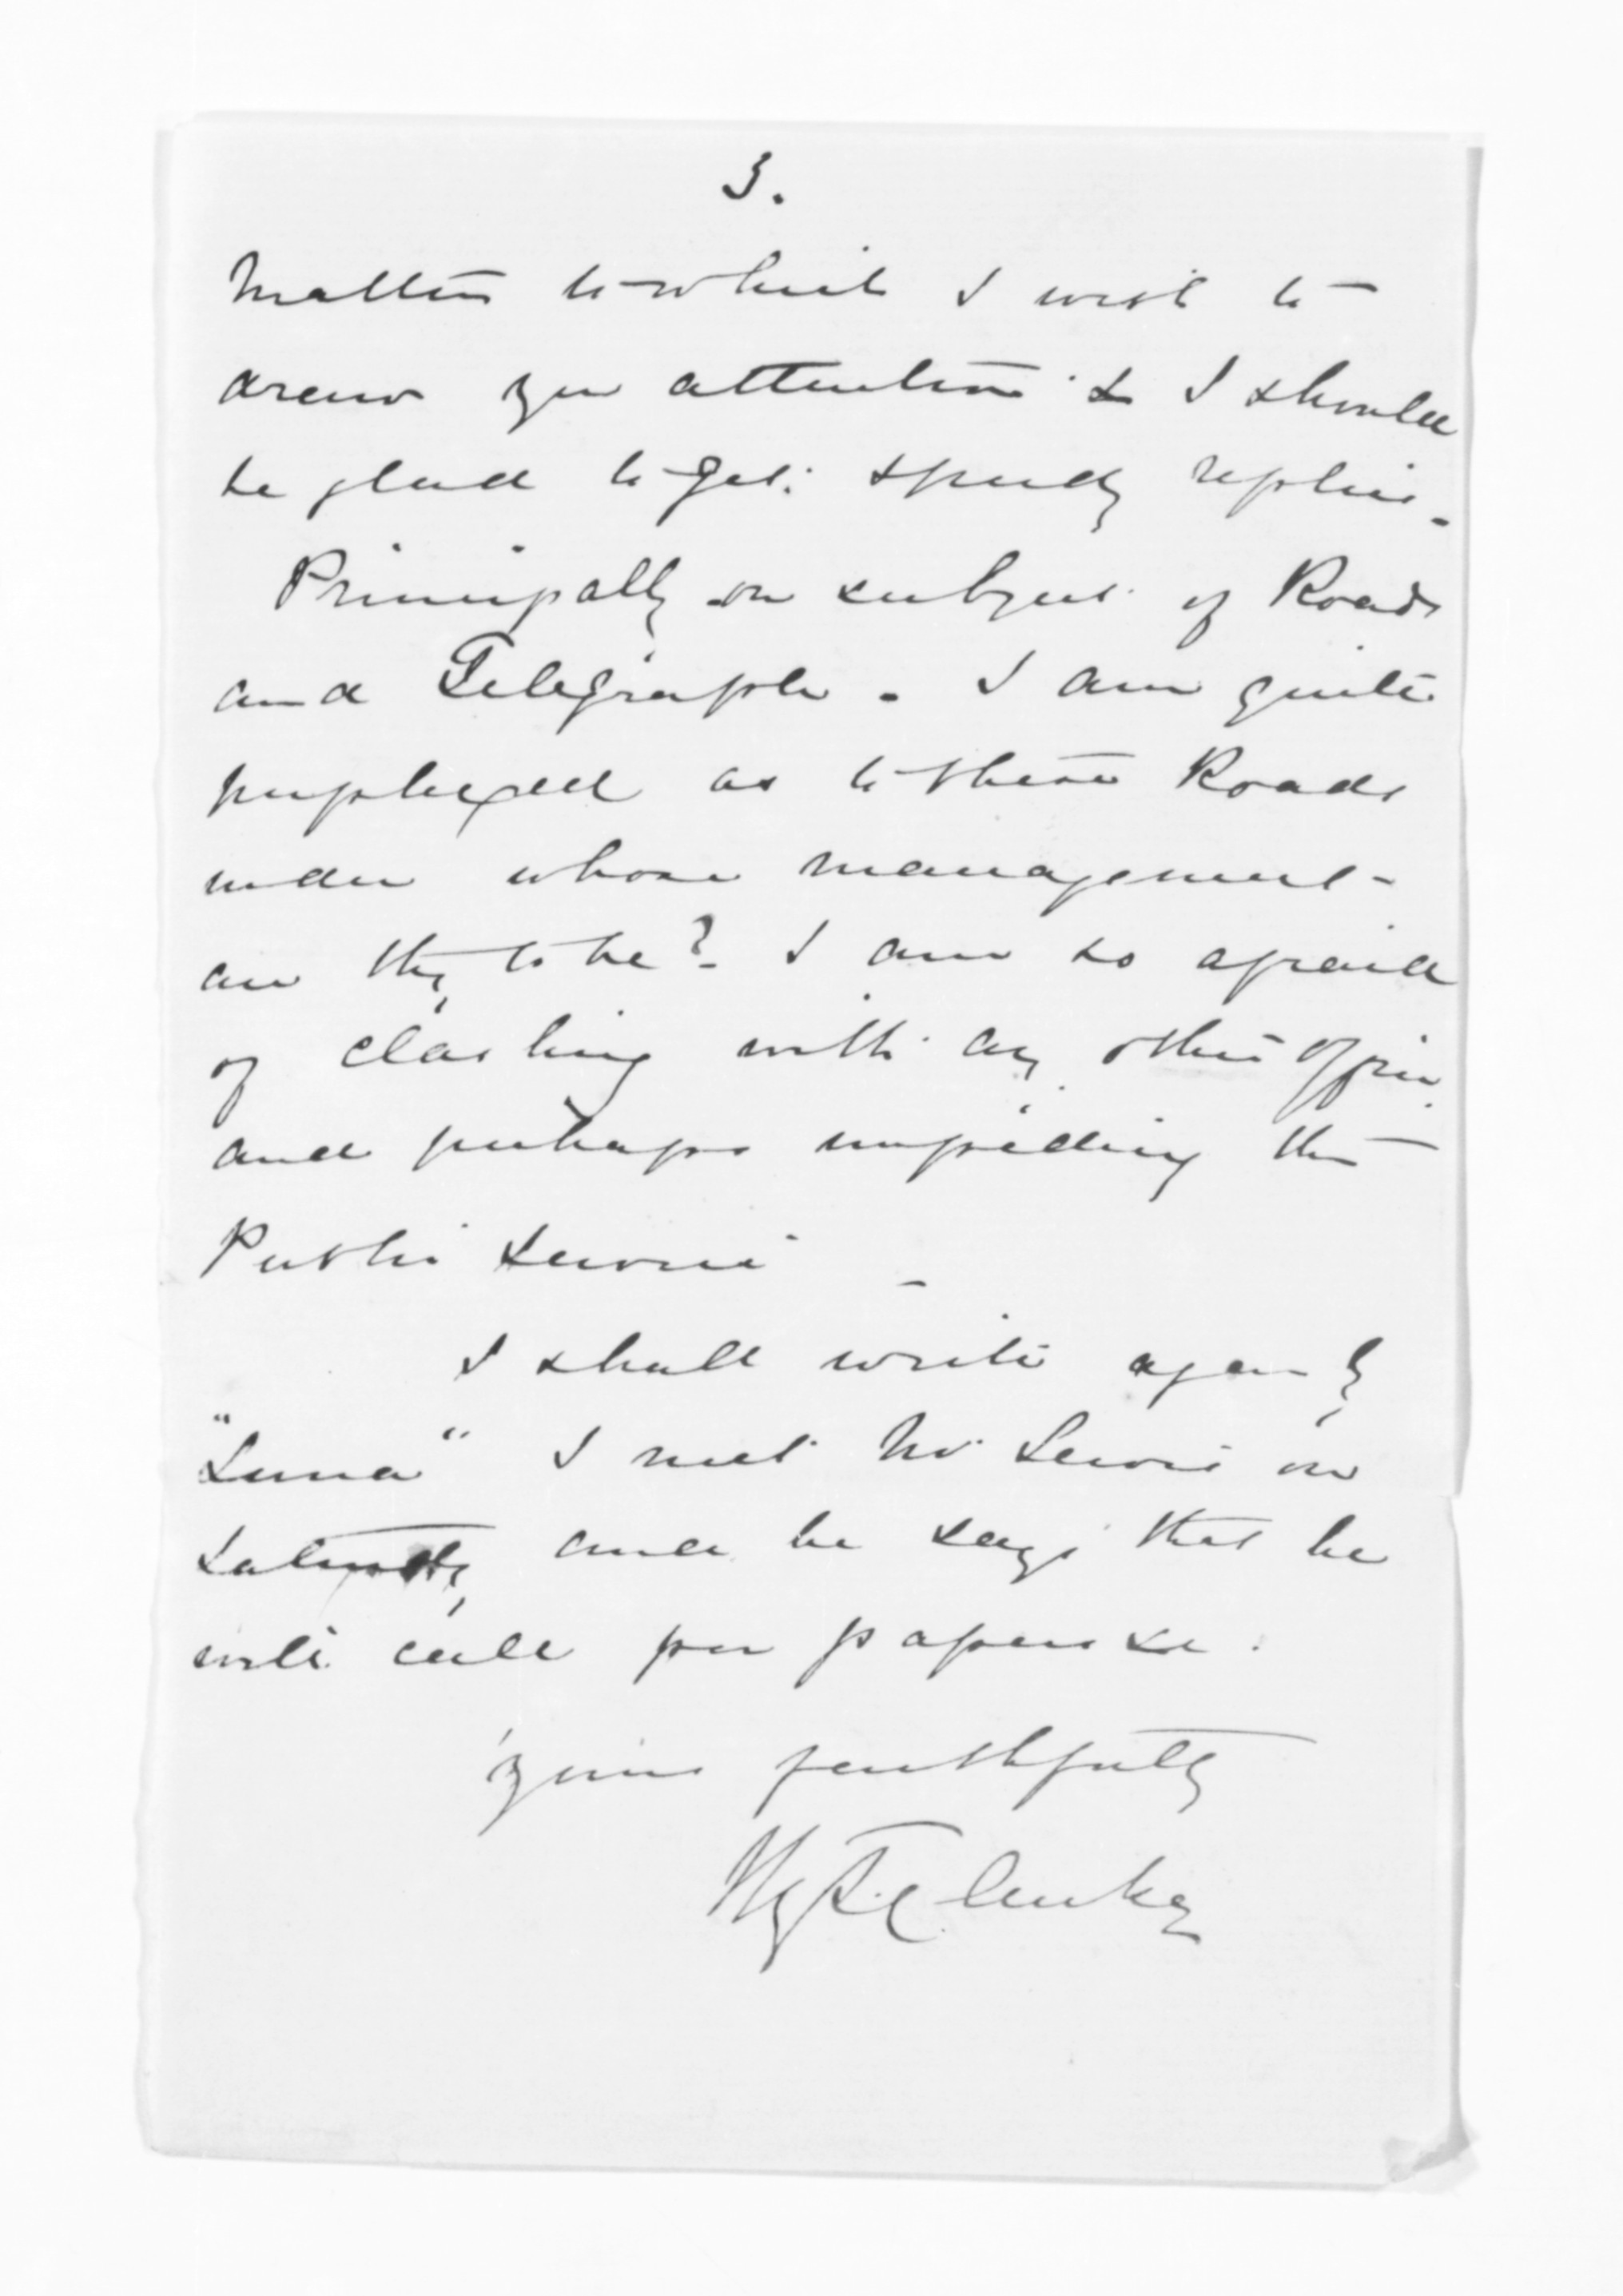 3.
matters to which I wish to
draw your attention & I should
be glad to get speedy replies.
Principally on subject of Roads
and Telegraph. I am quite
perplexed as to these Roads
under whose management
are they to be? I am so afraid
of clashing with any other officer
and perhaps impeding the
Public Service
I shall write again by
"Luna" I met Mr Lewis on
Saturday and he says that he
will call for papers &c.
Yours faithfully
Hy T. Clarke